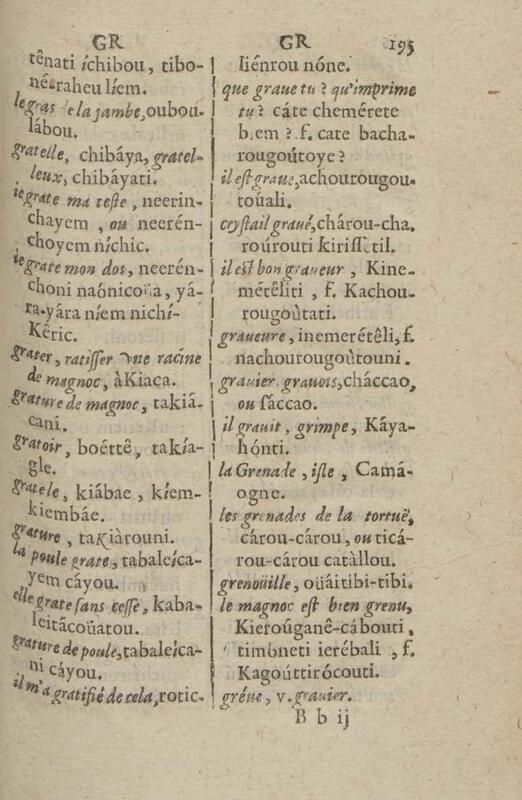 GR
tênati íchibou, tibo-
né raheu líem.
le gras e la jambe, oubou-
lábou.
gratelle, chibáya, gratel-
leux, chibáyati.
ie grate ma teste, neerin-
chayem, ou neerén-
choyem níchic.
ie grate mon dos, neerén-
choni naónicoüa, yá-
ra-yára níem nichí-
Kêric.
grater, ratisser vne racine
de magnoc, àKiaca.
grature de magnoc, takiá-
cani.
gratoir, boéttê, takía-
gle.
gratele, kiábae, kíem-
kiembáe.
grature, taKiàrouni.
la poule grate, tabaleíca-
yem cáyou.
elle grate sans cesse, kaba-
leitácoüatou.
grature de poule, tabaleíca-
ni cáyou.
il m'a gratifié de cela, rotic-
GR 195
liénrou nóne.
que graue tu? qu'imprime
tu? cáte chemérete
b em? f. cate bacha-
rougoútoye?
il est graue, achourougou-
toúali.
crystail graué, chárou-cha-
roúrouti kirissetil.
il est bon graueur, Kine-
métêliti, f. Kachou-
rougoûtati.
graueure, inemerétêli, f.
nachourougoûtouni.
grauier grauois, cháccao,
ou sáccao.
il grauit, grimpe, Káya-
hónti.
la Grenade, isle, Camá-
ogne.
les grenades de la tortuë,
cárou-cárou, ou ticá-
rou-cárou catàllou.
grenoüille, oüáitibi-tibi.
le magnoc est bien grenu,
Kieroúganê-cábouti,
timbneti ierébali, f.
Kagoúttirócouti.
gréue, v. grauier.
B b ij